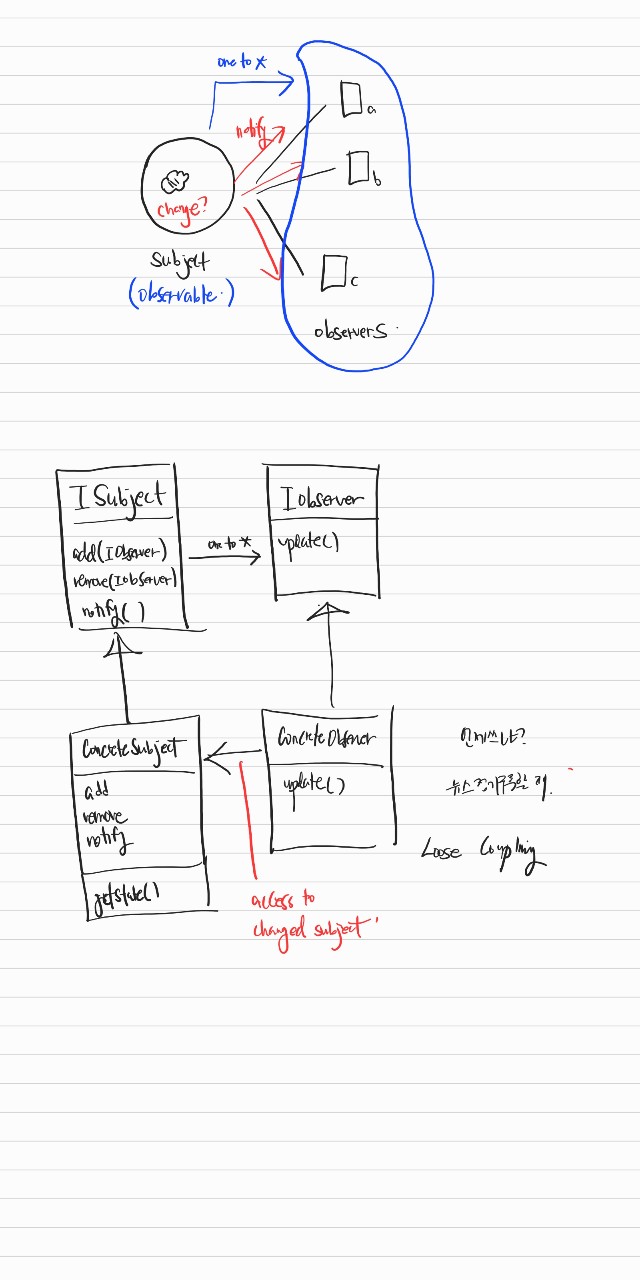 one to *
notify
a
b
change?
Subject
(observable.)
c
observers.
ISubject
add(IObserver)
remove(Iobserver)
notify()
one to *
Iobserver
update()
ConcreteSubject
add
remove
notify
getstate()
ConcreteObserver
update()
access to
changed subject
언제쓰냐?
뉴스 정기구독할 때.
Loose Coupling